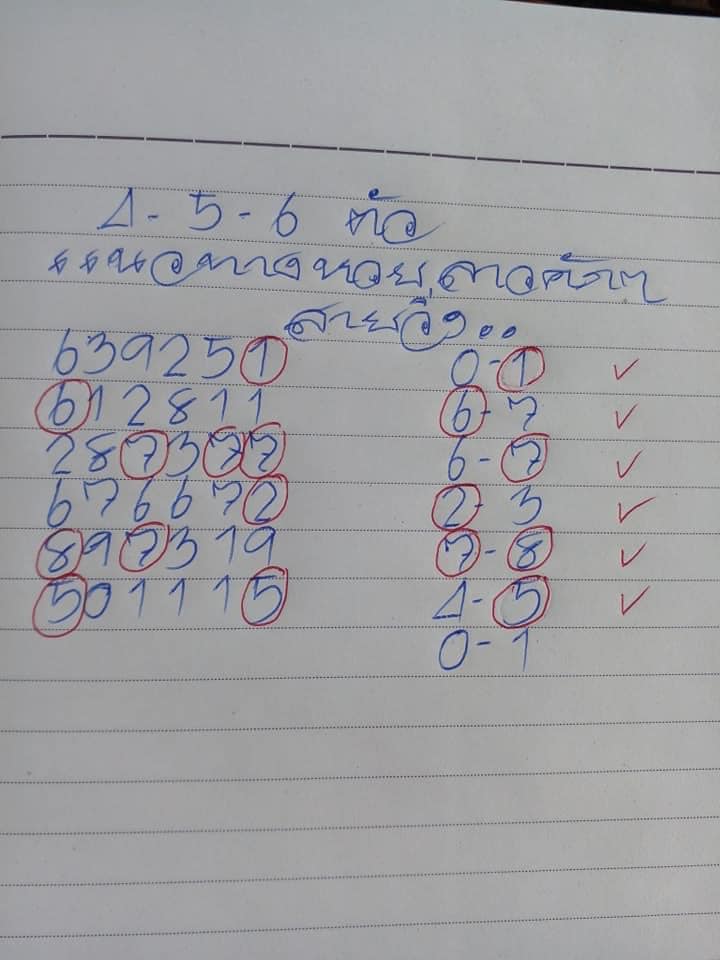 4-5-6 ตัว
แนวทางหวย ลาวคัดๆ
สายวิ่ง..
639251 0-1 ✓
612811 6-7 ✓
287377 6-7 ✓
676672 2-3 ✓
897319 7-8 ✓
501115 4-5 ✓
0-1